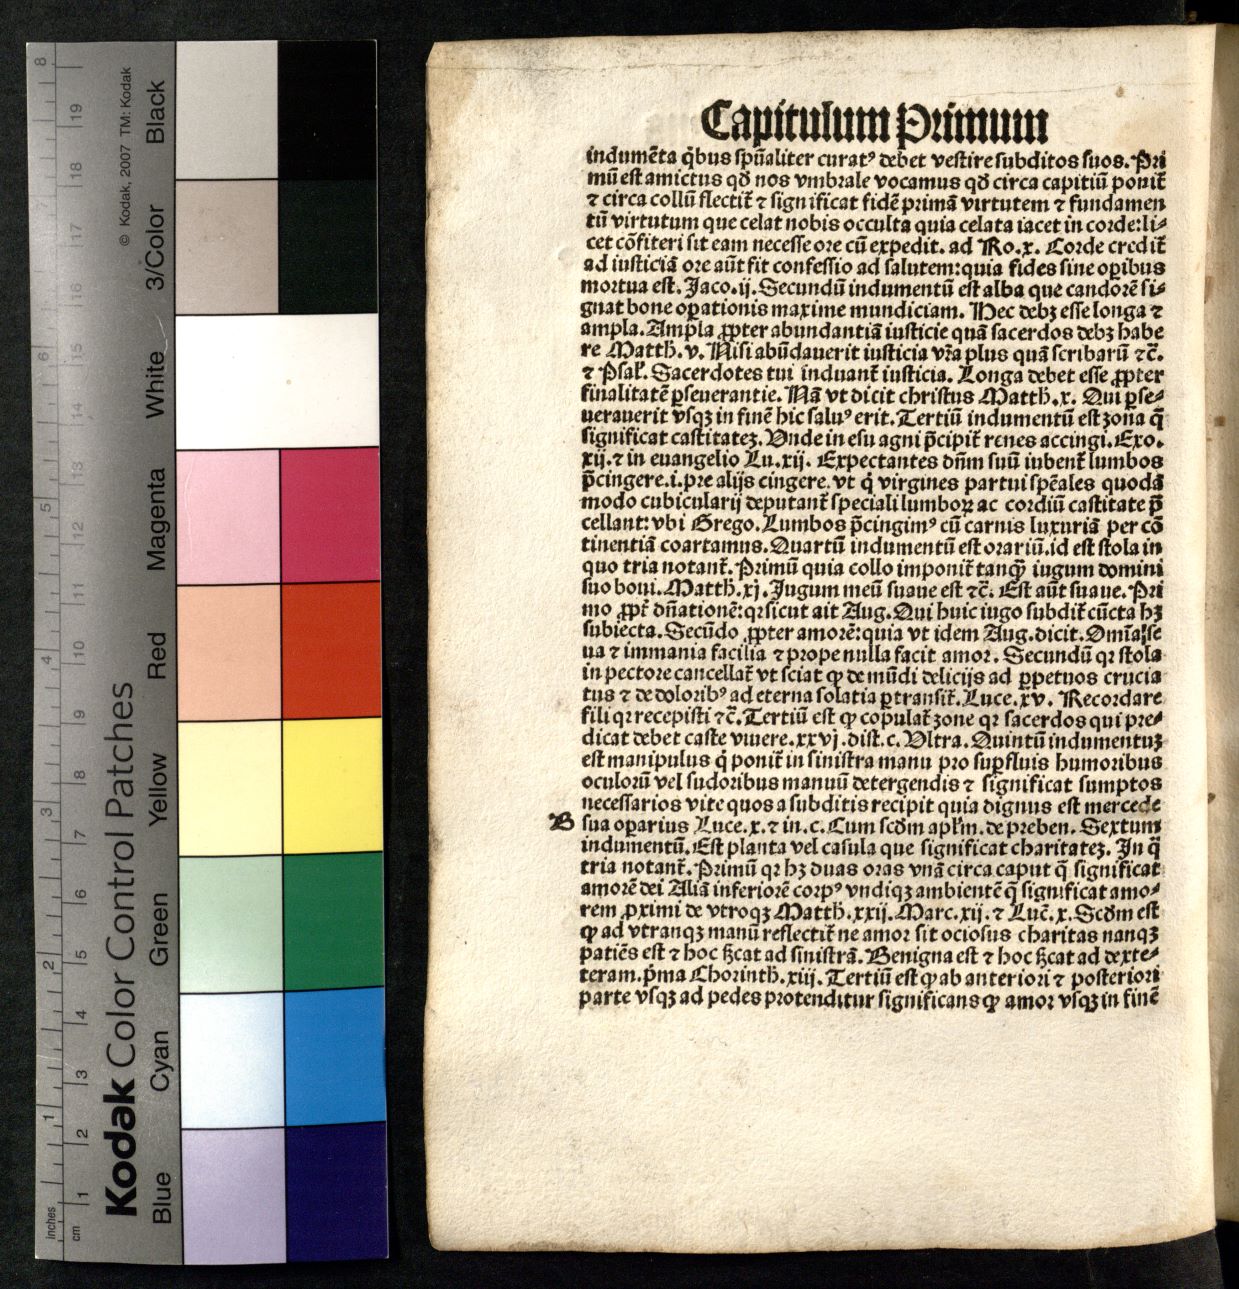 Capitulum Primum
indumēta q̇bus spūaliter curatꝰ debet vestire subditos suos. Pri
mū est amictus qđ nos vmbrale vocamus qđ circa capitiū ponit̄
⁊ circa collū flectit̄ ⁊ significat fidē primā virtutem ⁊ fundamen
tū virtutum que celat nobis occulta quia celata iacet in corde: li⸗
cet cōfiteri sit eam necesse ore cū expedit. ad Ro.x. Corde credit̄
ad iusticiā ore aūt fit confessio ad salutem: quia fides sine oꝑibus
mortua est. Jaco.ij. Secundū indumentū est alba que candorē si⸗
gnat bone oꝑationis maxime mundiciam. Hec debꝫ esse longa ⁊
ampla. Ampla ꝓpter abundantiā iusticie quā sacerdos debꝫ habe
re Matth.v. Nisi abūdauerit iusticia vr̄a plus quā scribarū ⁊c̄.
⁊ Psal̄. Sacerdotes tui induant̄ iusticia. Longa debet esse ꝓpter
finalitatē ꝑseuerantie. Nā vt dicit christus Matth.x. Qui ꝑse⸗
uerauerit vsqꝫ in finē hic saluꝰ erit. Tertiū indumentū est zona q̄
significat castitatez. Vnde in esu agni p̄cipit̄ renes accingi. Exo.
xij. ⁊ in euangelio Lu.xij. Expectantes dn̄m suū iubent̄ lumbos
p̄cingere.i.pre alijs cingere. vt q̇ virgines partui spēales quodā
modo cubicularij deputant̄ speciali lumboꝝ ac cordiū castitate p̄
cellant: vbi Grego. Lumbos p̄cingimꝰ cū carnis luxuriā per cō
tinentiā coartamus. Quartū indumentū est orariū. id est stola in
quo tria notant̄. Primū quia collo imponit̄ tanꝙ̄ iugum domini
suo boui. Matth.xj. Jugum meū suaue est ⁊c̄. Est aūt suaue. Pri
mo ꝓpt̄ dn̄ationē: qꝛ sicut ait Aug. Qui huic iugo subdit̄ cūcta hꝫ
subiecta. Secūdo ꝓpter amorē: quia vt idem Aug. dicit. Omīa se
ua ⁊ immania facilia ⁊ prope nulla facit amor. Secundū qꝛ stola
in pectore cancellat̄ vt sciat ꝙ de mūdi delicijs ad ꝑpetuos crucia
tus ⁊ de doloribꝰ ad eterna solatia ꝑtransit̄. Luce.xv. Recordare
fili qꝛ recepisti ⁊c̄. Tertiū est ꝙ copulat̄ zone qꝛ sacerdos qui pre⸗
dicat debet caste viuere. xxvj. dist. c. Vltra. Quintū indumentuꝫ
est manipulus q̇ ponit̄ in sinistra manu pro suꝑfluis humoribus
oculorū vel sudoribus manuū detergendis ⁊ significat sumptos
necessarios vite quos a subditis recipit quia dignus est mercede
B sua oꝑarius Luce.x. ⁊ in .c. Cum scd̄m apl̄m. de preben. Sextum
indumentū. Est planta vel casula que significat charitatez. In q̄
tria notant̄. Primū qꝛ hꝫ duas oras vnā circa caput q̄ significat
amorē dei Aliā inferiorē corpꝰ vndiqꝫ ambientē q̄ significat amo⸗
rem ꝓximi de vtroqꝫ Matth.xxij. Marc.xij. ⁊ Luc̄.x. Scd̄m est
ꝙ ad vtranqꝫ manū reflectit̄ ne amor sit ociosus charitas nanqꝫ
patiēs est ⁊ hoc sc̄cat ad sinistrā. Benigna est ⁊ hoc sc̄cat ad dexte⸗
teram. p̄ma Chorinth.xiij. Tertiū est ꝙ ab anteriori ⁊ posteriori
parte vsqꝫ ad pedes protenditur significans ꝙ amor vsqꝫ in finē
Kodak Color Control Patches
© Kodak, 2007 TM: Kodak
Blue Cyan Green Yellow Red Magenta White 3/Color Black
inches 1 2 3 4 5 6 8
cm 1 2 3 4 5 6 7 8 9 10 11 12 13 14 15 16 17 18 19